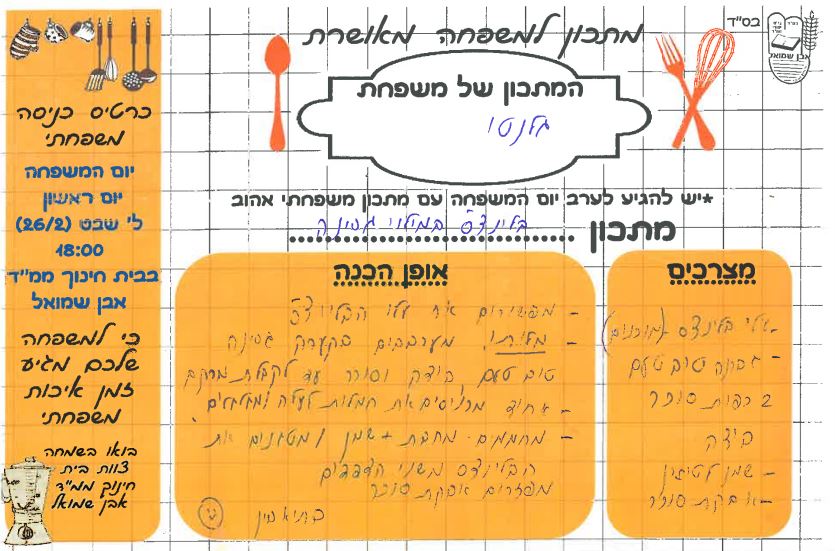 בס"ד
אבן שמואל
מתכון למשפחה מאושרת
המתכון של משפחת
גלנטי
*יש להגיע לערב יום המשפחה עם מתכון משפחתי אהוב
מתכון בלינצ'ס במילוי גבינה
מצרכים
- עלי בלינצ'ס (מוכנים)
- גבינה טוב טעם
2 כפות סוכר
ביצה
- שמן לטיגון
- אבקת סוכר
אופן הכנה
- מפשירים את עלי הבלינצ'ס
- מילוי: מערבבים בקערה גבינה
טוב טעם, ביצה וסוכר עד לקבלת מרקם
אחיד מכניסים את המלית לעלה ומגלגלים
- מחממים מחבת + שמן ומטגנים את
הבלינצ'ס משני הצדדים
מפזרים אבקת סוכר
בתיאבון
כרטיס כניסה
משפחתי
יום המשפחה
יום ראשון
ל' שבט (26/2)
18:00
בבית חינוך ממ"ד
אבן שמואל
כי למשפחה
שלכם מגיע
זמן איכות
משפחתי
בואו בשמחה
צוות בית
חינוך ממ"ד
אבן שמואל